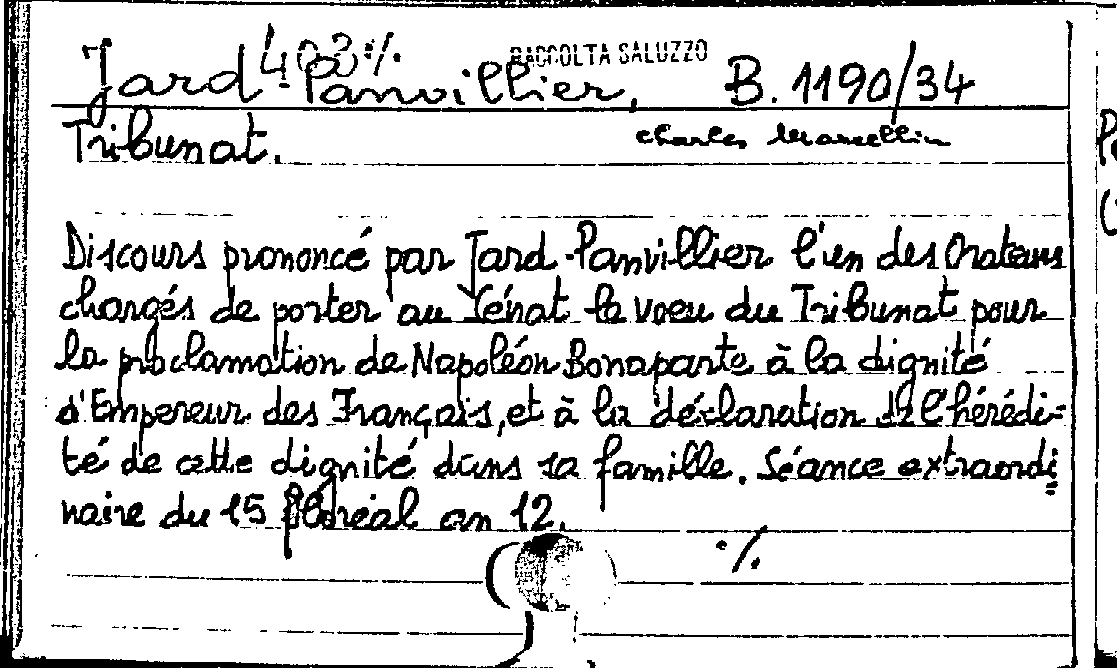 403 ·/.
RACCOLTA SALUZZO
Jard-Panvillier, B. 1190/34
Charles Marcellin
Tribunat.
Discours prononcé par Jard-Panvillier l'un des Orateurs
chargés de porter au Sénat le voeu du Tribunat pour
la proclamation de Napoléon Bonaparte à la dignité
d'Empereur des Français, et à la déclaration de l'hérédi=
té de cette dignité dans sa famille. Séance extraordi=
naire du 15 floréal an 12.
·/.